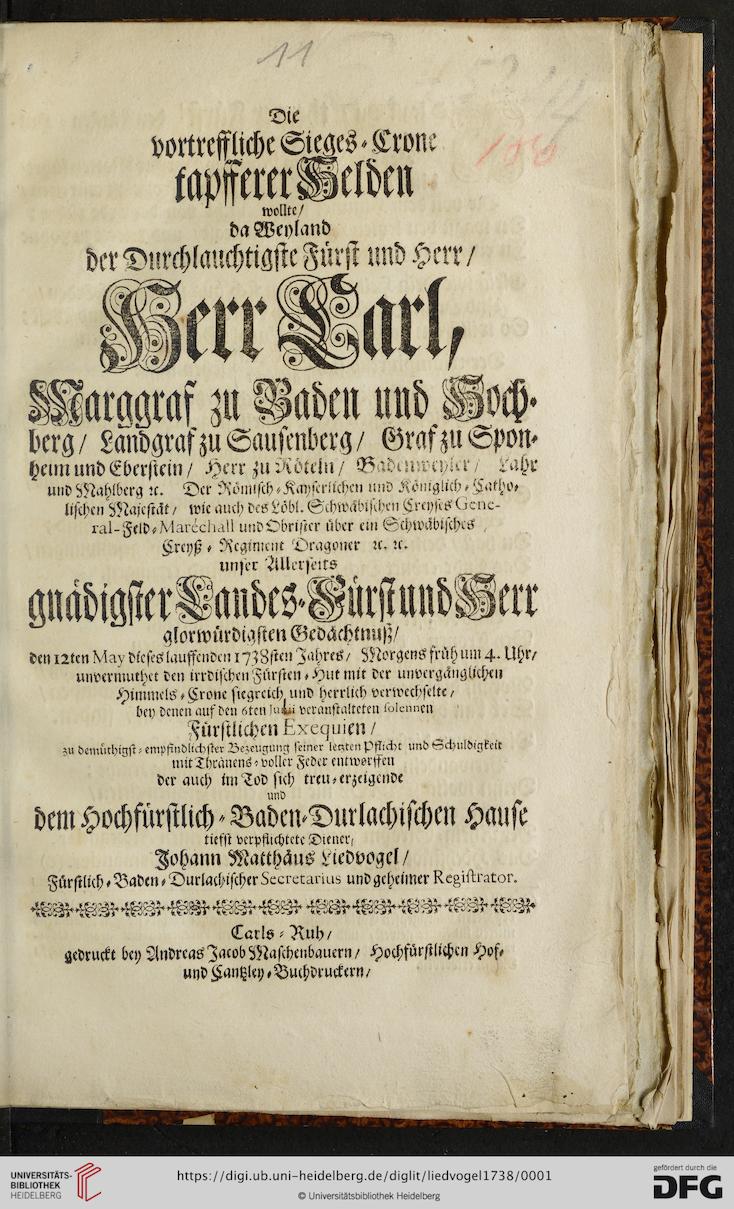 11
100
Die
vortreffliche Sieges-Crone
tapfferer Helden
wollte/
da Weyland
der Durchlauchtigste Fürst und Herr/
Herr Carl,
Marggraf zu Baden und Hoch-
berg/ Landgraf zu Sausenberg/ Graf zu Spon-
heim und Eberstein/ Herr zu Röteln/ Badenweyler/ Lahr
und Mahlberg ꝛc. Der Römisch-Kayserlichen und Königlich-Catho-
lischen Majestät/ wie auch des Löbl. Schwäbischen Creyses Gene-
ral-Feld-Maréchall und Obrister über ein Schwäbisches
Creyß-Regiment Dragoner ꝛc. ꝛc.
unser Allerseits
gnädigster Landes-Fürst und Herr
glorwürdigsten Gedächtnuß/
den 12ten May dieses lauffenden 1738sten Jahres/ Morgens früh um 4. Uhr/
unvermuthet den irrdischen Fürsten-Hut mit der unvergänglichen
Himmels-Crone siegreich und herrlich verwechselte/
bey denen auf den 6ten veranstalteten solennen
Fürstlichen Exequien/
zu demüthigst-empfindlichster Bezeugung seiner letzten Pflicht und Schuldigkeit
mit Thränens-voller Feder entworffen
der auch im Tod sich treu-erzeigende
und
dem Hochfürstlich-Baden-Durlachischen Hause
tiefst verpflichtete Diener,
Johann Matthäus Liedvogel/
Fürstlich-Baden-Durlachischer Secretarius und geheimer Registrator.
Carls-Ruh/
gedruckt bey Andreas Jacob Maschenbauern/ Hochfürstlichen Hof-
und Cantzley-Buchdruckern/
UNIVERSITÄTS-
BIBLIOTHEK
HEIDELBERG
https://digi.ub.uni-heidelberg.de/diglit/liedvogel1738/0001
© Universitätsbibliothek Heidelberg
gefördert durch die
DFG